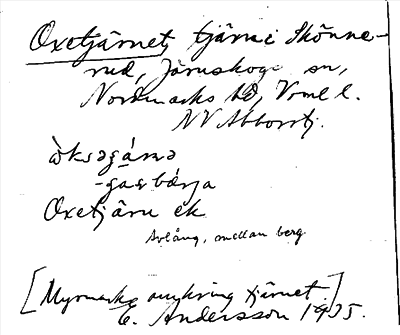 Oxetjärnet, tjärn i Skönne-
rud, Järnskogs sn,
Nordmarks hd, Vrml l.
NV Abborrtj.
òksəɡä́rnə
-gasbärja
Oxetjärn ek
Avlång, mellan berg
[Myrmark omkring tjärnet.]
E. Andersson 1935.